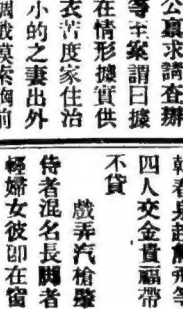 公稟求請查辦
等主案謂曰據
在情形據實供
衣苦度家住治
小的之妻出外
胸前
等
四人交金貴福帶
不貸
戲弄汽槍斃
侍者混名長脚者
輕婦女彼卽在窗